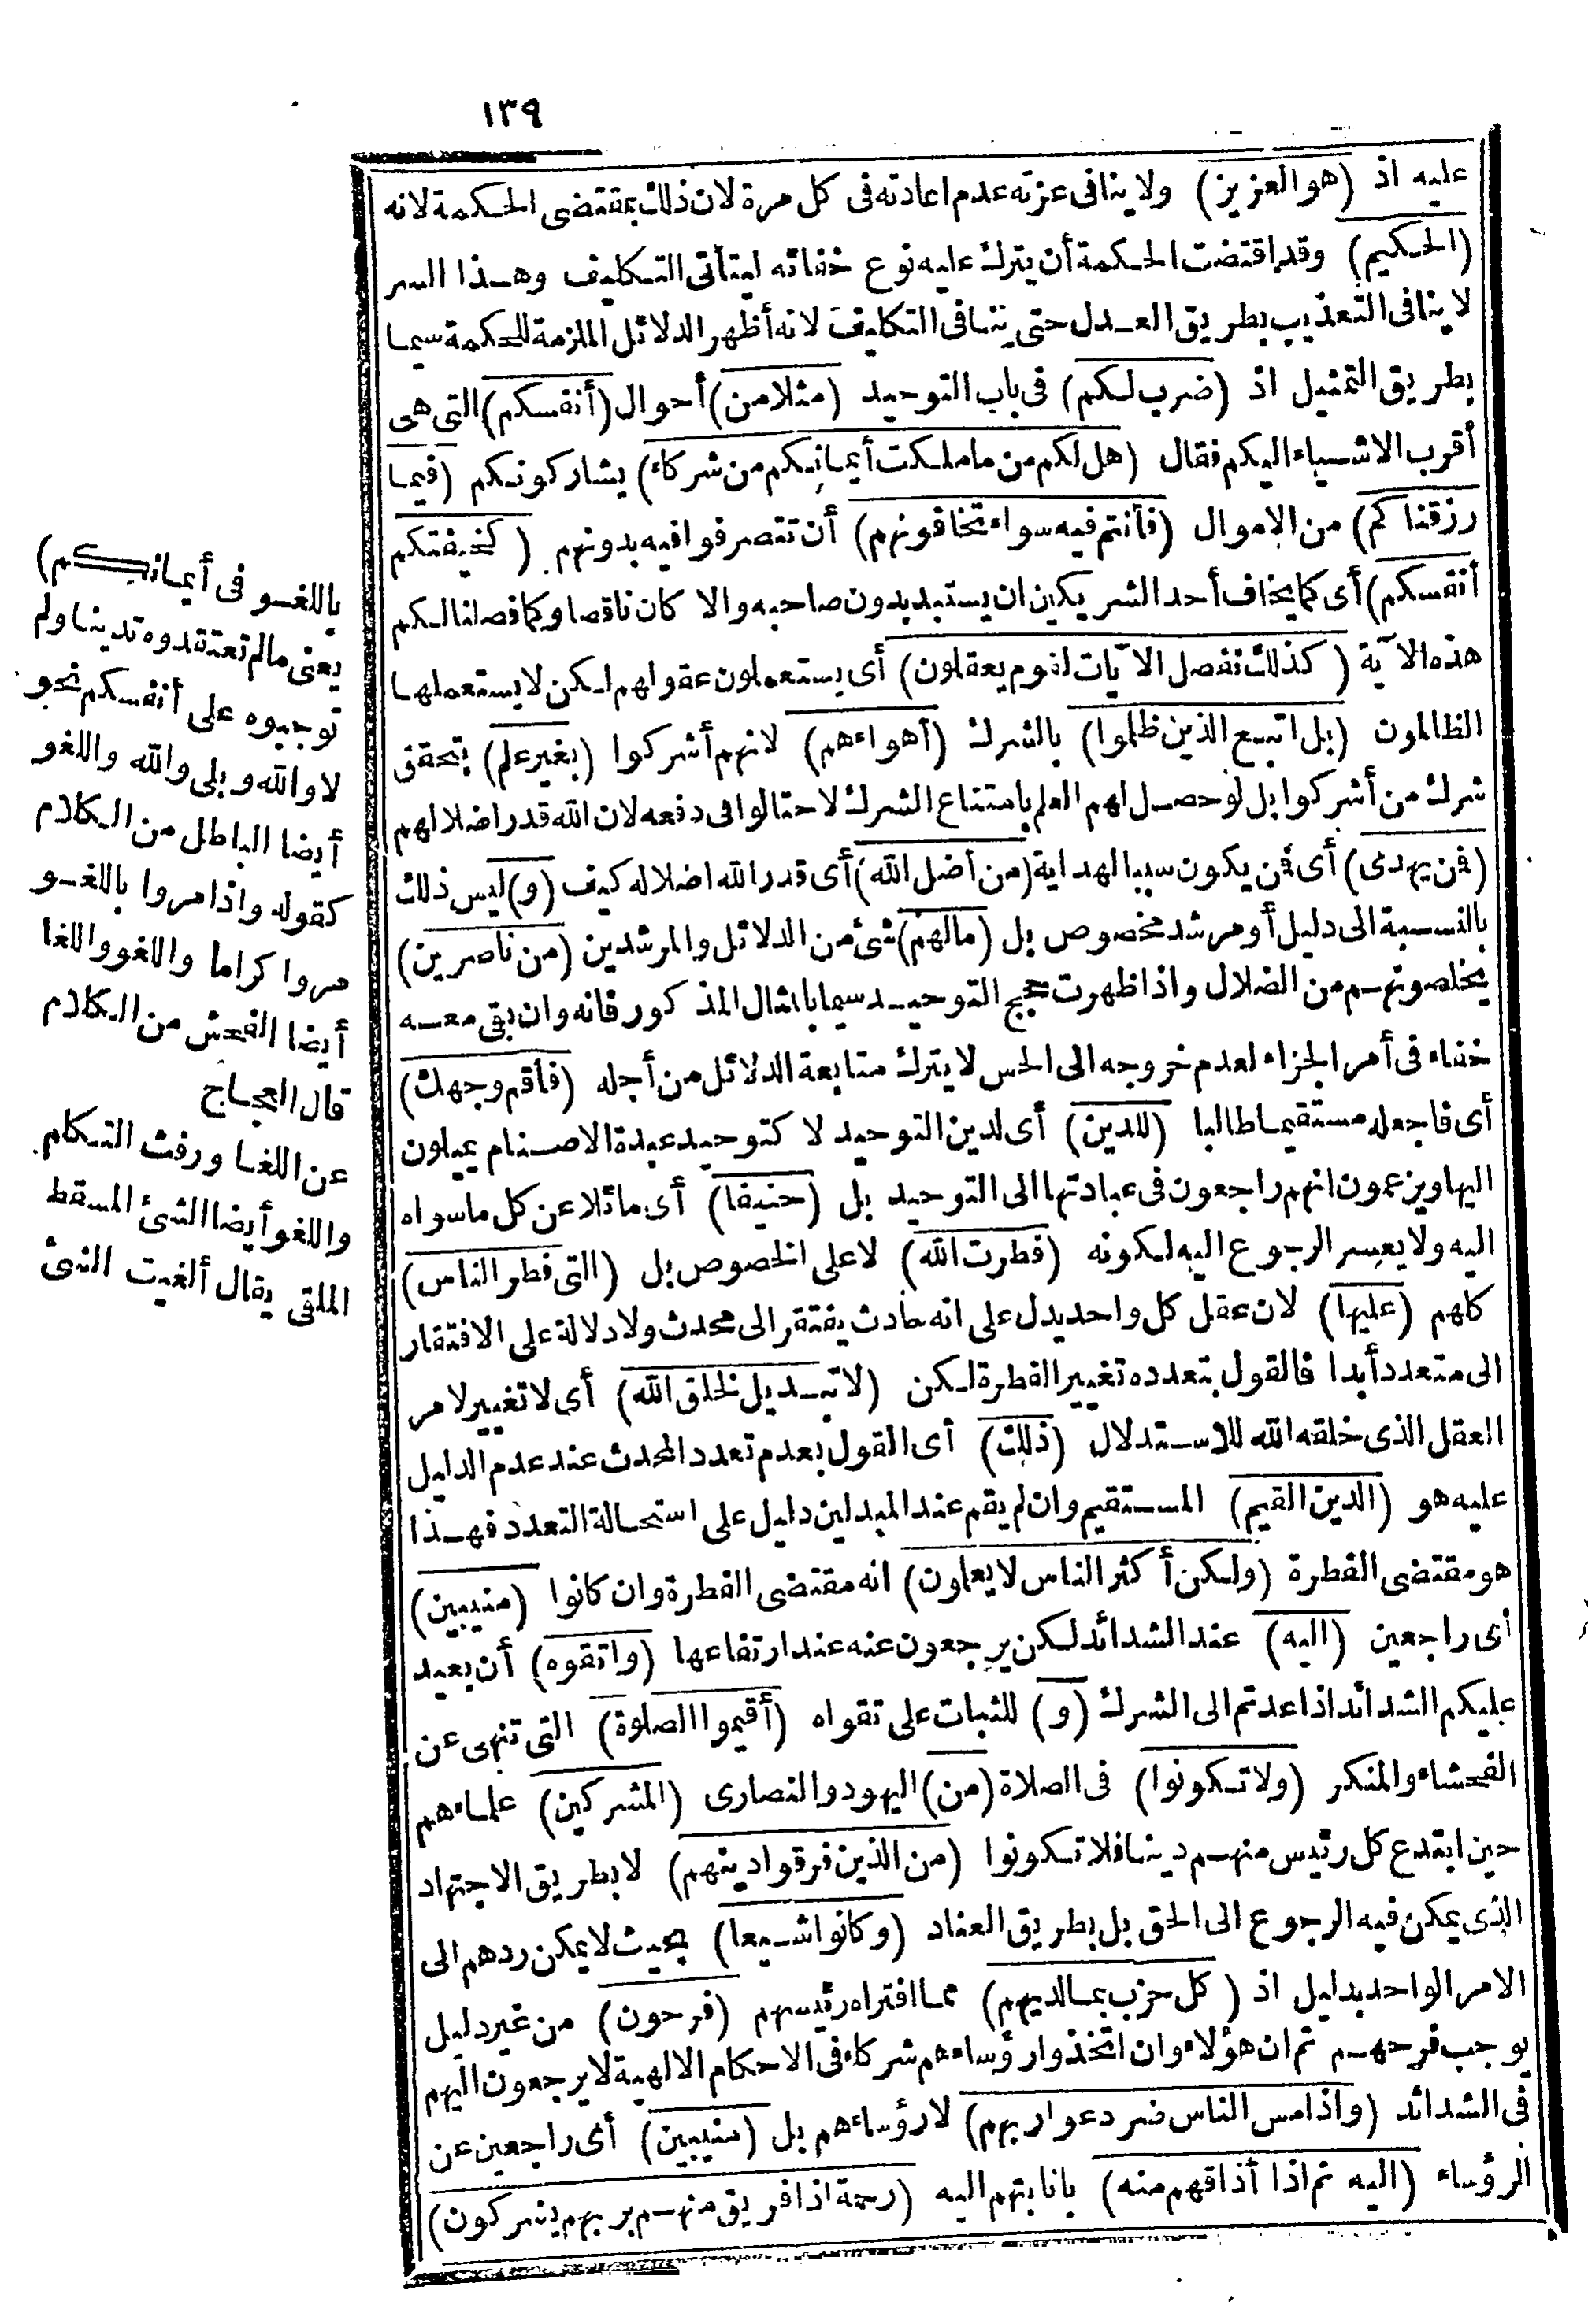 ١٣٩
عليه اذ (هو العزيز) ولا ينافى عزته عدم اعادته فى كل مرة لان ذلك بمقتضى الحكمة لانه
(الحكيم) وقد اقتضت الحكمة أن يترك عليه نوع خفائه ليتأتى التكليف وهذا السر
لا ينافى التعذيب بطريق العدل حتى ينافى التكليف لانه أظهر الدلائل الملزمة للحكمة سيما
بطريق التمثيل اذ (ضرب لكم) فى باب التوحيد (مثلا من) أحوال (أنفسكم) التى هى
أقرب الاشياء اليكم فقال (هل لكم من ما ملكت أيمانكم من شركاء) يشاركونكم (فيما
رزقناكم) من الاموال (فأنتم فيه سواء تخافونهم) أن تتصرفوا فيه بدونهم (كخيفتكم
أنفسكم) أى كما يخاف أحد الشريكين ان يستبد بدون صاحبه والا كان ناقصا وكما فصلنا لكم
هذه الآية (كذلك نفصل الآيات لقوم يعقلون) أى يستعملون عقولهم لكن لا يستعملها
الظالمون (بل اتبع الذين ظلموا) بالشرك (أهواءهم) لانهم أشركوا (بغير علم) بتحقق
شرك من أشركوا بل لو حصل لهم العلم بامتناع الشرك لاحتالوا فى دفعه لان الله قدر اضلالهم
(فمن يهدى) أى فمن يكون سببا لهداية (من أضل الله) أى قدر الله اضلاله كيف (و) ليس ذلك
بالنسبة الى دليل أو مرشد مخصوص بل (مالهم) شئ من الدلائل والمرشدين (من ناصرين)
يخلصونهم من الضلال واذا ظهرت حجج التوحيد سيما بالمثال المذكور فانه وان بقى معه
خفاء فى أمر الجزاء لعدم خروجه الى الحس لا يترك متابعة الدلائل من أجله (فأقم وجهك)
أى فاجعله مستقيما طالبا (للدين) أى لدين التوحيد لا كتوحيد عبدة الاصنام يميلون
اليها ويزعمون انهم راجعون فى عبادتها الى التوحيد بل (حنيفا) أى مائلا عن كل ما سواه
اليه ولا يعسر الرجوع اليه لكونه (فطرت الله) لا على الخصوص بل (التى فطر الناس)
كلهم (عليها) لان عقل كل واحد يدل على انه حادث يفتقر الى محدث ولا دلالة على الافتقار
الى متعدد أبدا فالقول بتعدده تغيير الفطرة لكن (لا تبديل لخلق الله) أى لا تغيير لامر
العقل الذى خلقه الله للاستدلال (ذلك) أى القول بعدم تعدد المحدث عند عدم الدليل
عليه هو (الدين القيم) المستقيم وان لم يقم عند المبدلين دليل على استحالة التعدد فهذا
هو مقتضى الفطرة (ولكن أكثر الناس لا يعلمون) انه مقتضى الفطرة وان كانوا (منيبين)
أى راجعين (اليه) عند الشدائد لكن يرجعون عنه عند ارتفاعها (واتقوه) أن يعيد
عليكم الشدائد اذا عدتم الى الشرك (و) للثبات على تقواه (أقيموا الصلوة) التى تنهى عن
الفحشاء والمنكر (ولا تكونوا) فى الصلاة (من) اليهود والنصارى (المشركين) علماءهم
حين ابتدع كل رئيس منهم دينا فلا تكونوا (من الذين فرقوا دينهم) لا بطريق الاجتهاد
الذى يمكن فيه الرجوع الى الحق بل بطريق العناد (وكانوا شيعا) بحيث لا يمكن ردهم الى
الامر الواحد بدليل اذ (كل حزب بما لديهم) مما افتراه رئيسهم (فرحون) من غير دليل
يوجب فرحهم ثم ان هؤلاء وان اتخذوا رؤساءهم شركاء فى الاحكام الالهية لا يرجعون اليهم
فى الشدائد (واذا مس الناس ضر دعوا ربهم) لا رؤساءهم بل (منيبين) أى راجعين عن
الرؤساء (اليه ثم اذا أذاقهم منه) بانابتهم اليه (رحمة اذا فريق منهم بربهم يشركون)
باللغو فى أيمانكم)
يعنى مالم تعتقدوه تدينا ولم
توجبوه على أنفسكم نحو
لا والله وبلى والله واللغو
أيضا الباطل من الكلام
كقوله واذا مروا باللغو
مروا كراما واللغو واللغا
أيضا الفحش من الكلام
قال العجاج
عن اللغا ورفث التكلم
واللغو أيضا الشئ المسقط
الملقى يقال ألغيت الشئ